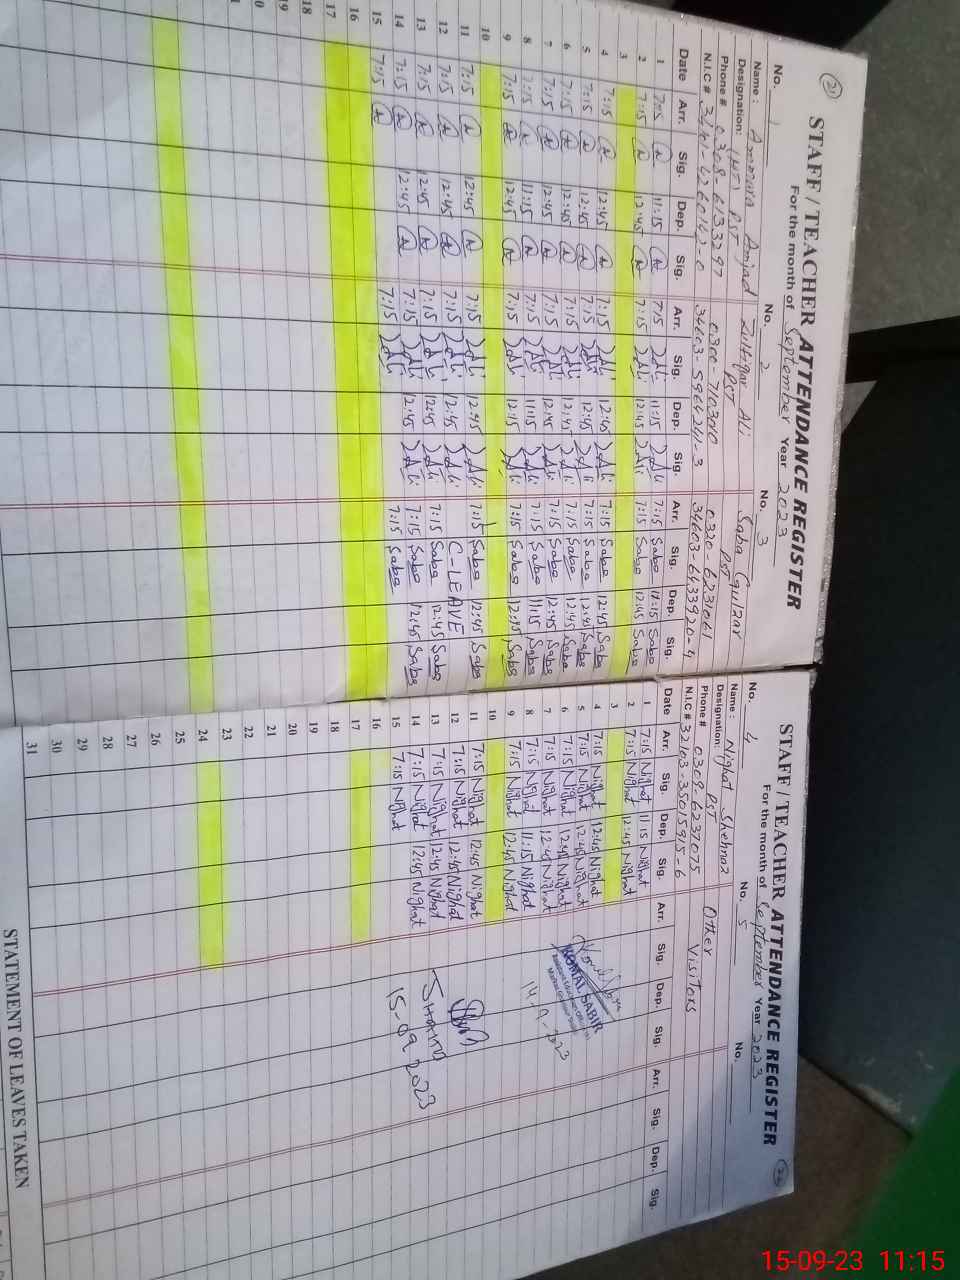 21
STAFF / TEACHER ATTENDANCE REGISTER
For the month of September Year 2023
No. 1 No. 2 No. 3
Name: Ammara Amjad Zulfiqar Ali Saba Gulzar
Designation: (HT) PST PST PST
Phone # 0308-6133297 0320-6231061
N.I.C # 34603-5964241-3 34603-6433920-4
Date Arr. Sig. Dep. Sig. Arr. Sig. Dep. Sig. Arr. Sig. Dep. Sig.
1 7:15 11:15 7:15 11:15 7:15 Saba 11:15 Saba
2 7:15 12:45 7:15 12:45 7:15 Saba 12:45 Saba
3
4 7:15 12:45 7:15 12:45 7:15 Saba 12:45 Saba
5 7:15 12:45 7:15 12:45 7:15 Saba 12:45 Saba
6 7:15 12:45 7:15 12:45 7:15 Saba 12:45 Saba
7 7:15 12:45 7:15 12:45 7:15 Saba 12:45 Saba
8 7:15 11:15 7:15 11:15 7:15 Saba 11:15 Saba
9 7:15 12:45 7:15 12:15 7:15 Saba 12:15 Saba
10
11 7:15 12:45 7:15 12:45 7:15 Saba 12:45 Saba
12 7:15 12:45 7:15 12:45 C-LEAVE
13 7:15 12:45 7:15 12:45 7:15 Saba 12:45 Saba
14 7:15 12:45 7:15 12:45 7:15 Saba 12:45 Saba
15 7:15 7:15 7:15 Saba
16
17
18
19
20
STAFF / TEACHER ATTENDANCE REGISTER
For the month of September Year 2023
No. 4 No. 5 No.
Name: Nighat Shehnaz Other
Designation: PST Visitors
Phone # 0309-6237075
N.I.C # 32103-3501595-6
Date Arr. Sig. Dep. Arr. Sig. Dep. Sig. Arr. Sig. Dep. Sig.
1 7:15 Nighat 11:15 Nighat
2 7:15 Nighat 12:45 Nighat
3
4 7:15 Nighat 12:45 Nighat
5 7:15 Nighat 12:45 Nighat
6 7:15 Nighat 12:45 Nighat
7 7:15 Nighat 12:45 Nighat
8 7:15 Nighat 11:15 Nighat
9 7:15 Nighat 12:45 Nighat
10
11 7:15 Nighat 12:45 Nighat
12 7:15 Nighat 12:45 Nighat
13 7:15 Nighat 12:45 Nighat
14 7:15 Nighat 12:45 Nighat
15 7:15 Nighat
16
17
18
19
20
21
22
23
24
25
26
27
28
29
30
31
KOMAL SABIR
14-9-2023
15-09 2023
STATEMENT OF LEAVES TAKEN
15-09-23 11:15